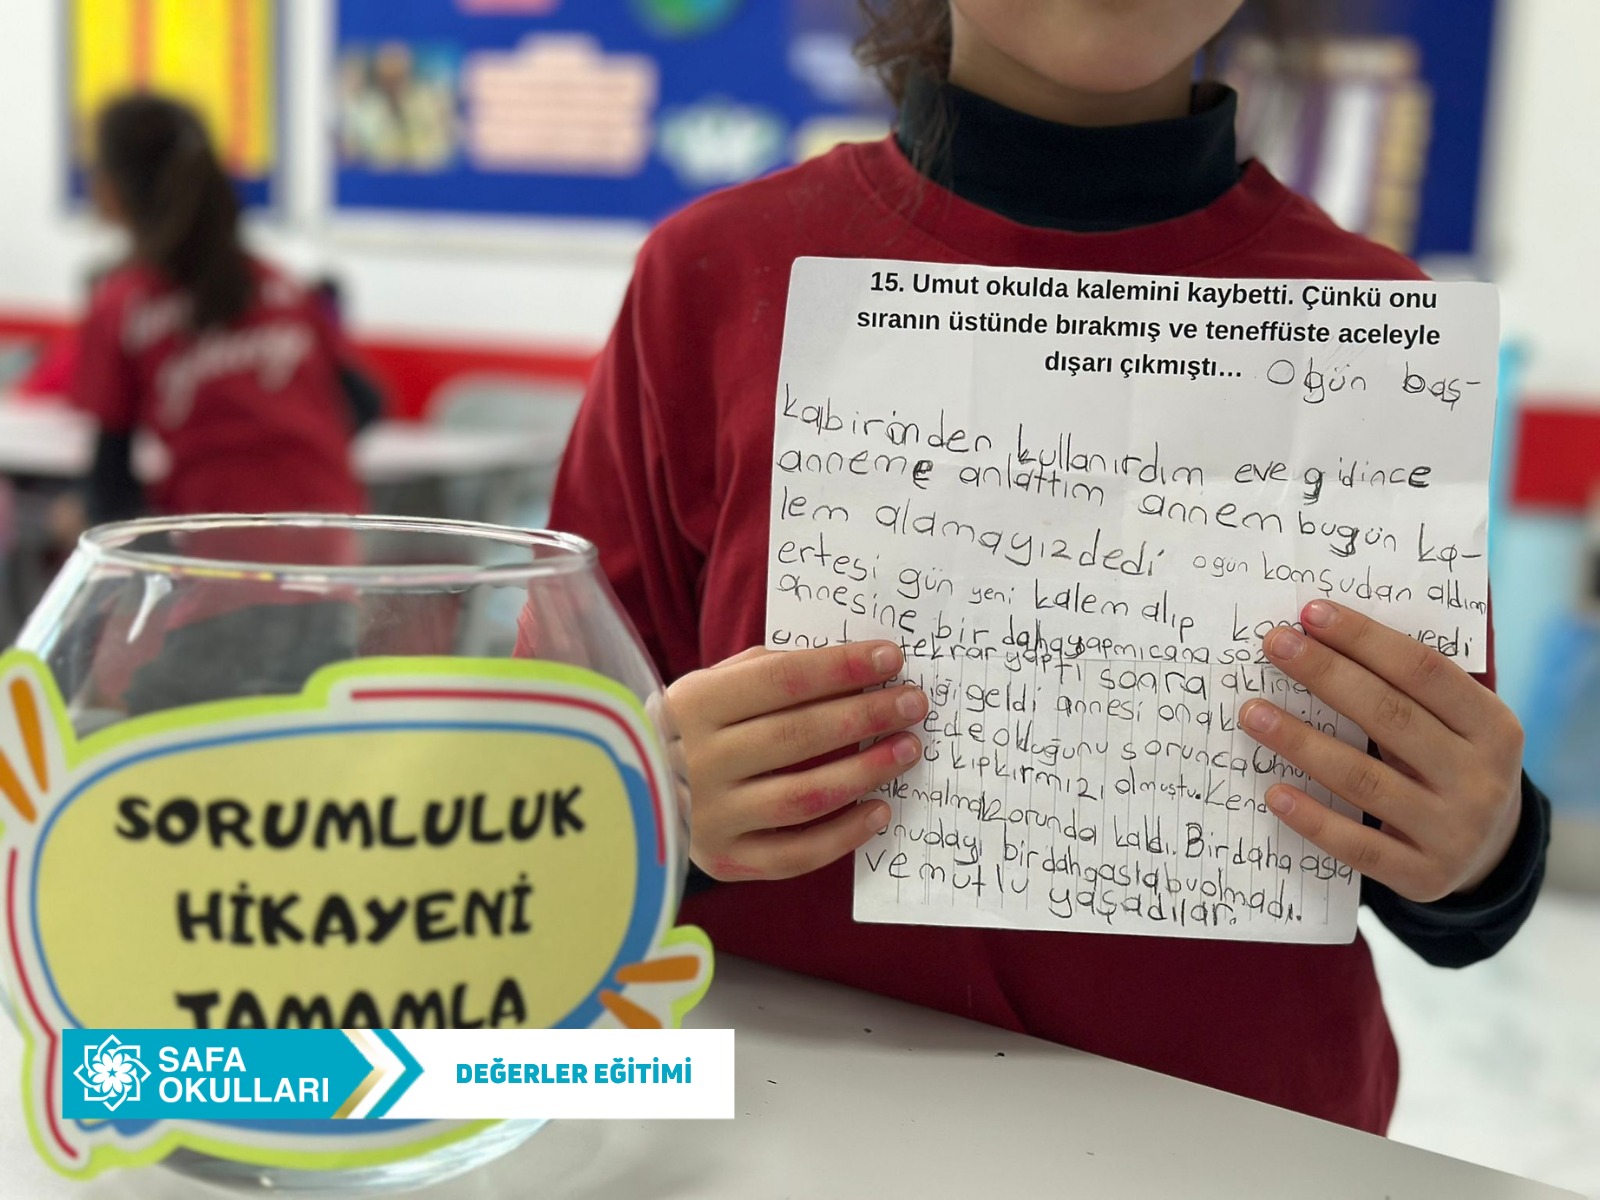 15. Umut okulda kalemini kaybetti. Çünkü onu
sıranın üstünde bırakmış ve teneffüste aceleyle
dışarı çıkmıştı... O gün baş-
kabirinden kullanırdım eve gidince
anneme anlattım annem bugün ka-
lem alamayız dedi o gün komşudan aldım
ertesi gün yeni kalem alıp verdi
annesine bir daha yapmıcana söz
tekrar yaptı sonra aklına
geldi annesi ona
olduğunu sorunca
kıpkırmızı olmuştu.
zorunda kaldı. Bir daha asla
bir daha asla bu olmadı.
ve mutlu yaşadılar.
SORUMLULUK
HİKAYENİ
TAMAMLA
SAFA
OKULLARI
DEĞERLER EĞİTİMİ